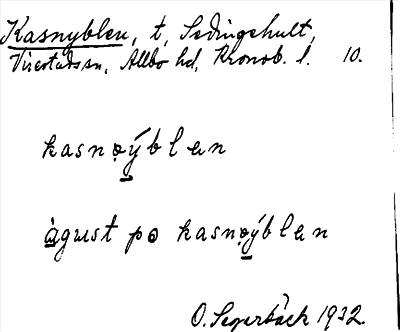 Kasnyblen, t, Sedingehult,
Virestads sn, Allbo hd, Kronob. l. 10.
kasnọýblen
àgust po kasnọýblen
O. Segerbäck 1932.